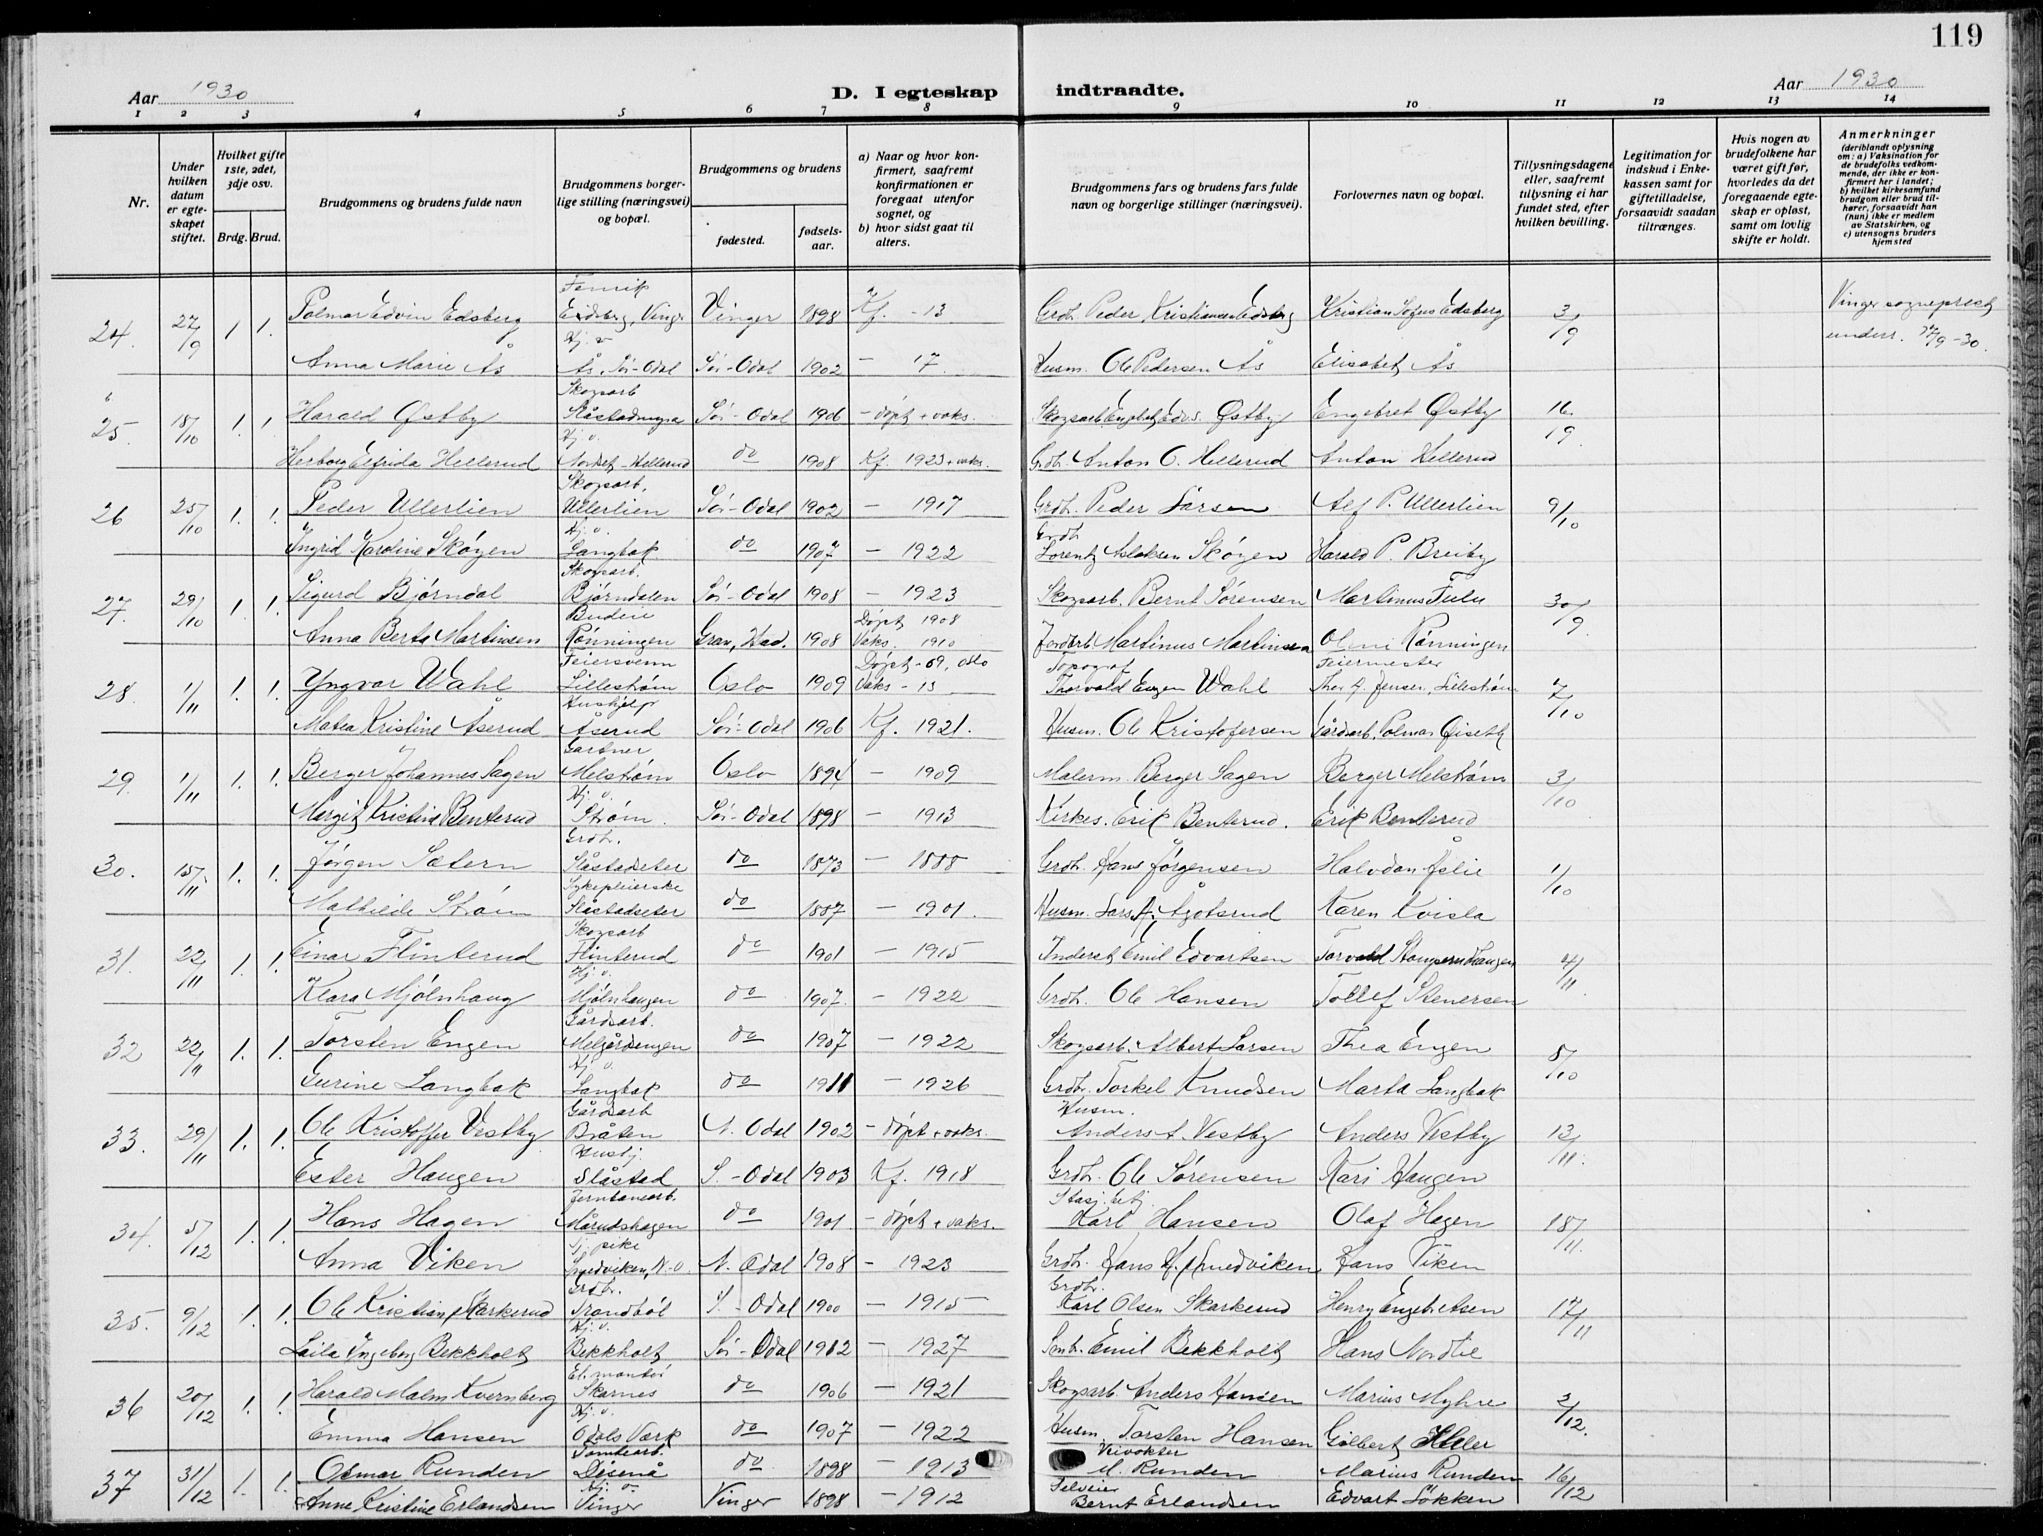 119
Aar 1930 D. I egteskap indtraadte. Aar 1930
1 2 3 4 5 6 7 8 9 10 11 12 13 14
Nr.
Under hvilken datum er egteskapet stiftet.
Hvilket gifte 1ste, 2det, 3dje osv.
Brdg. Brud.
Brudgommens og brudens fulde navn
Brudgommens borgerlige stilling (næringsvei) og bopæl.
Brudgommens og brudens
fødested.
fødselsaar.
a) Naar og hvor konfirmert, saafremt konfirmationen er foregaat utenfor sognet, og
b) hvor sidst gaat til alters.
Brudgommens fars og brudens fars fulde navn og borgerlige stillinger (næringsvei).
Forlovernes navn og bopæl.
Tillysningsdagene eller, saafremt tillysning ei har fundet sted, efter hvilken bevilling.
Legitimation for indskud i Enkekassen samt for giftetilladelse, forsaavidt saadan tiltrænges.
Hvis nogen av brudefolkene har været gift før, hvorledes da det foregaaende egteskap er opløst, samt om lovlig skifte er holdt.
Anmerkninger (deriblandt oplysning om: a) Vaksination for de brudefolks vedkommende, der ikke er konfirmert her i landet; b) hvilket kirkesamfund brudgom eller brud tilhører, forsaavidt han (hun) ikke er medlem av Statskirken, og c) utensogns bruders hjemsted
24. 27/9 1. 1. Polmar Edvin Edsberg Fenrik Eidsberg, Vinger Vinger 1898 Kf. - 13 Grdb. Peder Kristiansen Edsberg Kristian Sofus Edsberg 3/9 Vinger sogneprest underr. 27/9-30.
Anna Marie Ås Hj. v. Ås, Sør-Odal Sør-Odal 1902 - 17 Husm. Ole Pedersen Ås Elisabet Ås
25. 18/10 1. 1. Harald Østby Skogsarb Slåstad Sør-Odal 1906 - døpt + vaks. Skogsarb. Engebret Edv. Østby Engebret Østby 16/9
Herborg Elfrida Hellerud Hj. v. Nordset-Hellerud do 1908 Kf. 1923 + vaks. Grdb. Anton O. Hellerud Anton Hellerud
26 25/10 1. 1. Peder Ullerlien Skogsarb. Ullerlien Sør-Odal 1902 - 1917 Grdb. Peder Larsen Alf P. Ullerlien 9/10
Ingrid Karoline Skøyen Hj. v. Langbak do 1907 - 1922 Grdb Lorentz Aslaksen Skøyen Harald P. Breiby
27. 29/10 1. 1. Sigurd Bjørndal Skogsarb. Bjørndalen Sør-Odal 1908 - 1923 Skogsarb. Bernt Sørensen Martinus Fulu 30/9
Anna Berta Martinsen Budeie Rønningen Gran, Had. 1908 Døpt 1908 Vaks. 1910 Jordarb. Martinus Martinsen Oluni Rønningen
28. 1/11 1. 1. Yngvar Wahl Feiersvenn Lillestrøm Oslo 1909 Døpt -09, Oslo Vaks - 13 Topograf Thorvald Eugen Wahl Feiermester Thor A. Jensen, Lillestrøm 7/10
Matea Kristine Åserud Hushjelp Åserud Sør-Odal 1906 Kf. 1921. Husm. Ole Kristofersen Gårdsarb. Polmar Øiseth
29. 1/11 1. 1. Berger Johannes Sagen Gartner Melstrøm Oslo 1894 - 1909 Malerm. Berger Sagen Berger Melstrøm 3/10
Margit Kristine Benterud Hj. v. Strøm. Sør-Odal 1898 - 1913 Kirkes. Erik Benterud. Erik Benterud
30. 15/11 1. 1. Jørgen Sætern Grdbr. Slåstadseter do 1873 - 1888 Grdb. Hans Jørgensen Halvdan Åslie 1/10
Mathilde Strøm Sykepleierske Slåstadseter do 1887 - 1901. Husm. Lars A. Agotsrud Karen Kvisla
31. 22/11 1. 1. Einar Flinterud Skogsarb Flinterud do 1901 - 1915 Inderst Emil Edvartsen Torvald Stomperudhaugen 4/11
Klara Mjølnhaug Hj. v. Mjølnhaugen do 1907. - 1922 Grdb. Ole Hansen Tollef Stenersen
32 22/11 1. 1. Torsten Engen Gårdsarb. Melgårdengen do 1907 - 1922 Skogsarb. Albert Larsen Thea Engen 8/10
Gurine Langbak Hj. v. Langbak do 1911 - 1926 Grdb. Torkel Knudsen Marta Langbak
33. 29/11 1. 1. Ole Kristoffer Vestby Gårdsarb Bråten N. Odal 1902 - døpt + vaks. Husm. Anders A. Vestby Anders Vestby 13/11.
Ester Haugen Hushj. Slåstad S.-Odal 1903 Kf. 1918 Grdb. Ole Sørensen Kari Haugen
34. 5/12 1. 1. Hans Hagen Jernbanearb. Mårudshagen do 1901. - døpt + vaks. Stasj. betj Karl Hansen Olaf Hagen 18/11.
Anna Viken Tj. pike Smedviken, N. O. N. Odal 1908 - 1923 Grdb. Hans H. Smedviken Hans Viken
35. 9/12 1. 1. Ole Kristian Skarkerud Grdbr. Trandbøl S.-Odal 1900 - 1915 Grdb. Karl Olsen Skarkerud Henry Engebretsen 17/11
Laila Ingeborg Bekkholt Hj. v. Bekkholt Sør-Odal 1912 - 1927 Emil Bekkholt Hans Nordlie
36 20/12 1. 1. Harald Malm Kvernberg El. montør Skarnes do 1906 - 1921 Skogsarb. Anders Hansen Marius Myhre 2/12.
Emma Hansen Hj. v. Odals Værk do 1907 - 1922 Husm. Torsten Hansen Gilbert Heller
37 31/12 1. 1. Osmar Runden Tomtearb. Disenå do 1898 - 1913 Veivokter M. Runden Marius Runden 16/12
Anne Kristine Erlandsen Hj. v. Vinger Vinger 1898 - 1912 Bernt Erlandsen Edvart Løkken